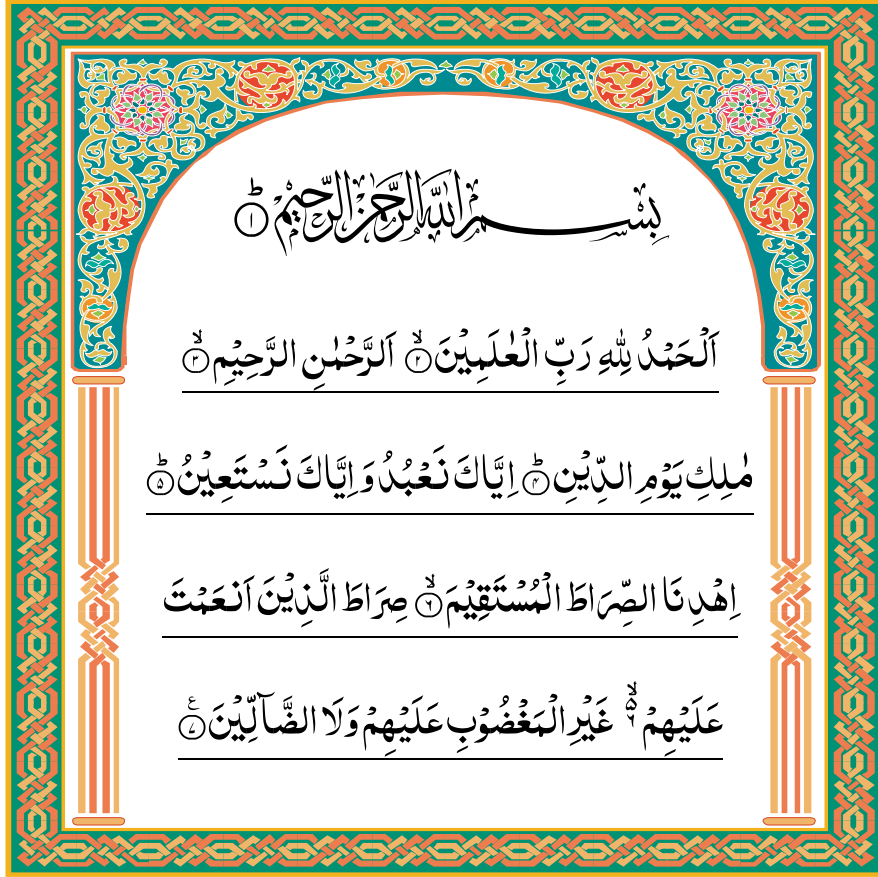 بِسْمِ اللّٰهِ الرَّحْمٰنِ الرَّحِيْمِ ؕ﴿۱﴾
اَلْحَمْدُ لِلّٰهِ رَبِّ الْعٰلَمِيْنَ ۙ﴿۲﴾ اَلرَّحْمٰنِ الرَّحِيْمِ ۙ﴿۳﴾
مٰلِكِ يَوْمِ الدِّيْنِ ؕ﴿۴﴾ اِيَّاكَ نَعْبُدُ وَ اِيَّاكَ نَسْتَعِيْنُ ؕ﴿۵﴾
اِهْدِنَا الصِّرَاطَ الْمُسْتَقِيْمَ ۙ﴿۶﴾ صِرَاطَ الَّذِيْنَ اَنْعَمْتَ
عَلَيْهِمْ ۙ۬ غَيْرِ الْمَغْضُوْبِ عَلَيْهِمْ وَلَا الضَّآلِّيْنَ ﴿۷﴾ ع